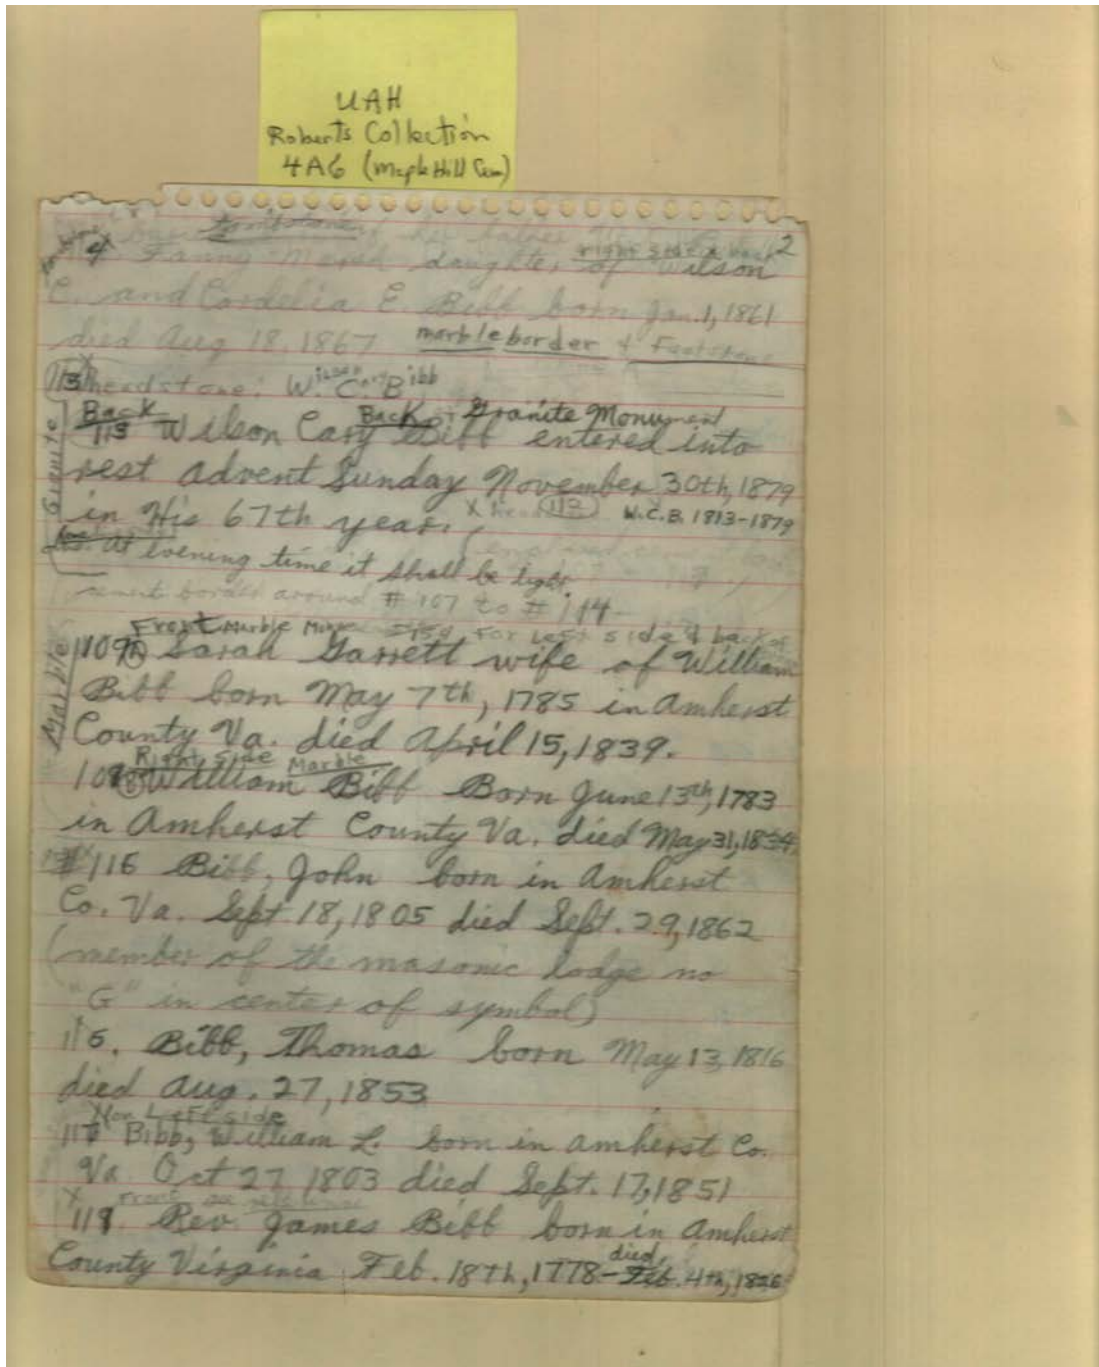 UAH
Roberts Collection
4A6 (Maple Hill Cem)
2
tombstone of her
right side & back
4. Fanny Marsh daughter of Wilson
C. and Cordelia E. Bibb born Jan. 1, 1861
died Aug 18, 1867 marble border & Footstone
113 headstone: Wilson Cary Bibb
Back Back of Granite Monument
Granite
113 Wilson Cary Bibb entered into
rest Advent Sunday November 30th, 1879
in His 67th year. X head 113 W.C.B. 1813-1879
At evening time it shall be light.
cement border around #107 to #114
Front Marble For Left side & back of
Marble
109A Sarah Garrett wife of William
Bibb born May 7th, 1785 in Amherst
County Va. died April 15, 1839.
Right side Marble
109B William Bibb Born June 13th, 1783
in Amherst County Va. died May 31, 1834
#116 Bibb, John born in Amherst
Co. Va. Sept. 18, 1805 died Sept. 29, 1862
(member of the masonic lodge no
"G" in center of symbol)
115. Bibb, Thomas born May 13, 1816
died Aug. 27, 1853
Left side
Bibb, William L. born in Amherst Co.
Va. Oct 27 1803 died Sept. 17, 1851
X Front
119. Rev. James Bibb born in Amherst
County Virginia Feb. 18th, 1778 - died Feb. 4th, 1826